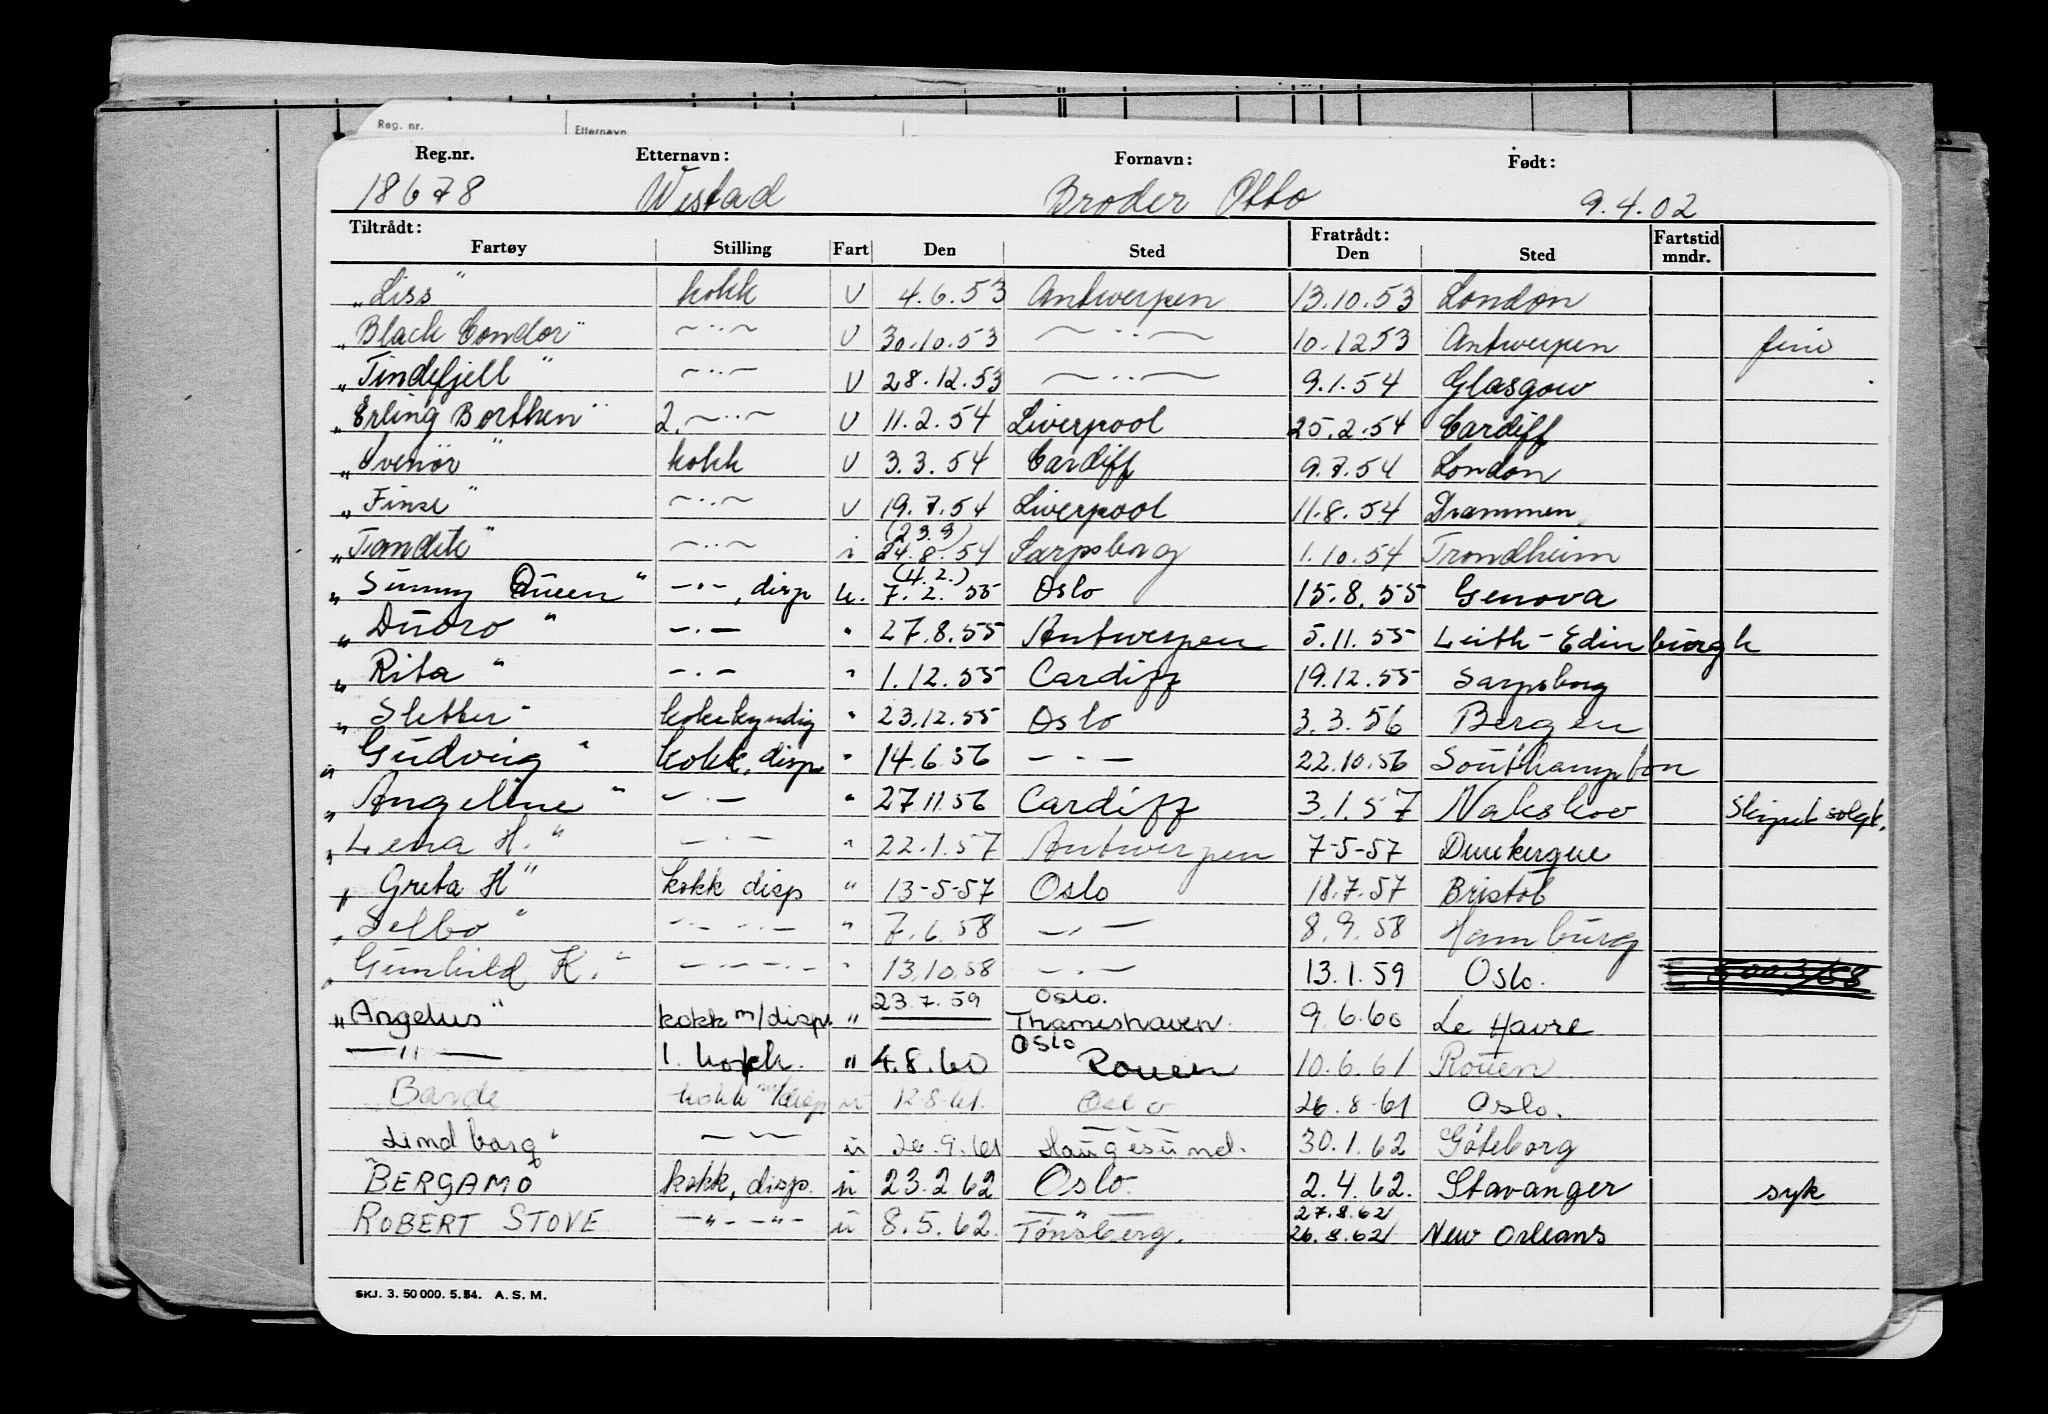 Reg. nr. Etternavn
Reg.nr. Etternavn: Fornavn: Født:
18678 Westad Broder Otto 9.4.02
Tiltrådt: Fratrådt: Fartstid
Fartøy Stilling Fart Den Sted Den Sted mndr.
„Liss" kokk U 4.6.53 Antwerpen 13.10.53 London
„Black Condor" ~··~ U 30.10.53 ~··~ 10.12 53 Antwerpen
„Tindefjell" ~··~ U 28.12.53 ~··~ 9.1.54 Glasgow
„Erling Borthen" 2. ~··~ U 11.2.54 Liverpool 25.2.54 Cardiff
„Svenør" kokk U 3.3.54 Cardiff 9.7.54 London
„Finse" ~··~ U 19.7.54 Liverpool 11.8.54 Drammen
(23.9)
„Tandik" ~··~ i 24.8.54 Sarpsborg 1.10.54 Trondheim
(4.2.)
„Sunny Queen" —·—, disp u. 7.2.55 Oslo 15.8.55 Genova
„Duoro" —·— " 27.8.55 Antwerpen 5.11.55 Leith-Edinburgh
„Rita" —·— " 1.12.55 Cardiff 19.12.55 Sarpsborg
„Sletter" kokekyndig " 23.12.55 Oslo 3.3.56 Bergen
„Gudveig" kokk, disp " 14.6.56 —·— 22.10.56 Southampton
„Angeline" —·— " 27.11.56 Cardiff 3.1.57 Nakskov Skipet solgt.
„Lena H." —·— " 22.1.57 Antwerpen 7-5-57 Dunkerque
„Greta H" kokk disp " 13-5-57 Oslo 18.7.57 Bristol
„Selbo" —·—·— " 7.6.58 —·— 8.9.58 Hamburg
„Gunhild K." —·—·— " 13.10.58 —·— 13.1.59 Oslo.
23.7.59 Oslo.
„Angelus" kokk m/disp. " Thameshaven. 9.6.60 Le Havre
Oslo
—"— 1. kokk. " 4.8.60 Rouen 10.6.61 Rouen
Barde kokk m/disp u 12-8-61. Oslo 26-8-61 Oslo.
Lindborg" — — u 26.9.61 Haugesund. 30.1.62 Göteborg
"BERGAMO kokk, disp. u 23.2 62 Oslo. 2.4.62. Stavanger syk
27.8.62
ROBERT STOVE —"—"— u 8.5.62. Tønsberg. 26.8.62 New Orleans
SKJ. 3. 50 000. 5. 54. A. S. M.